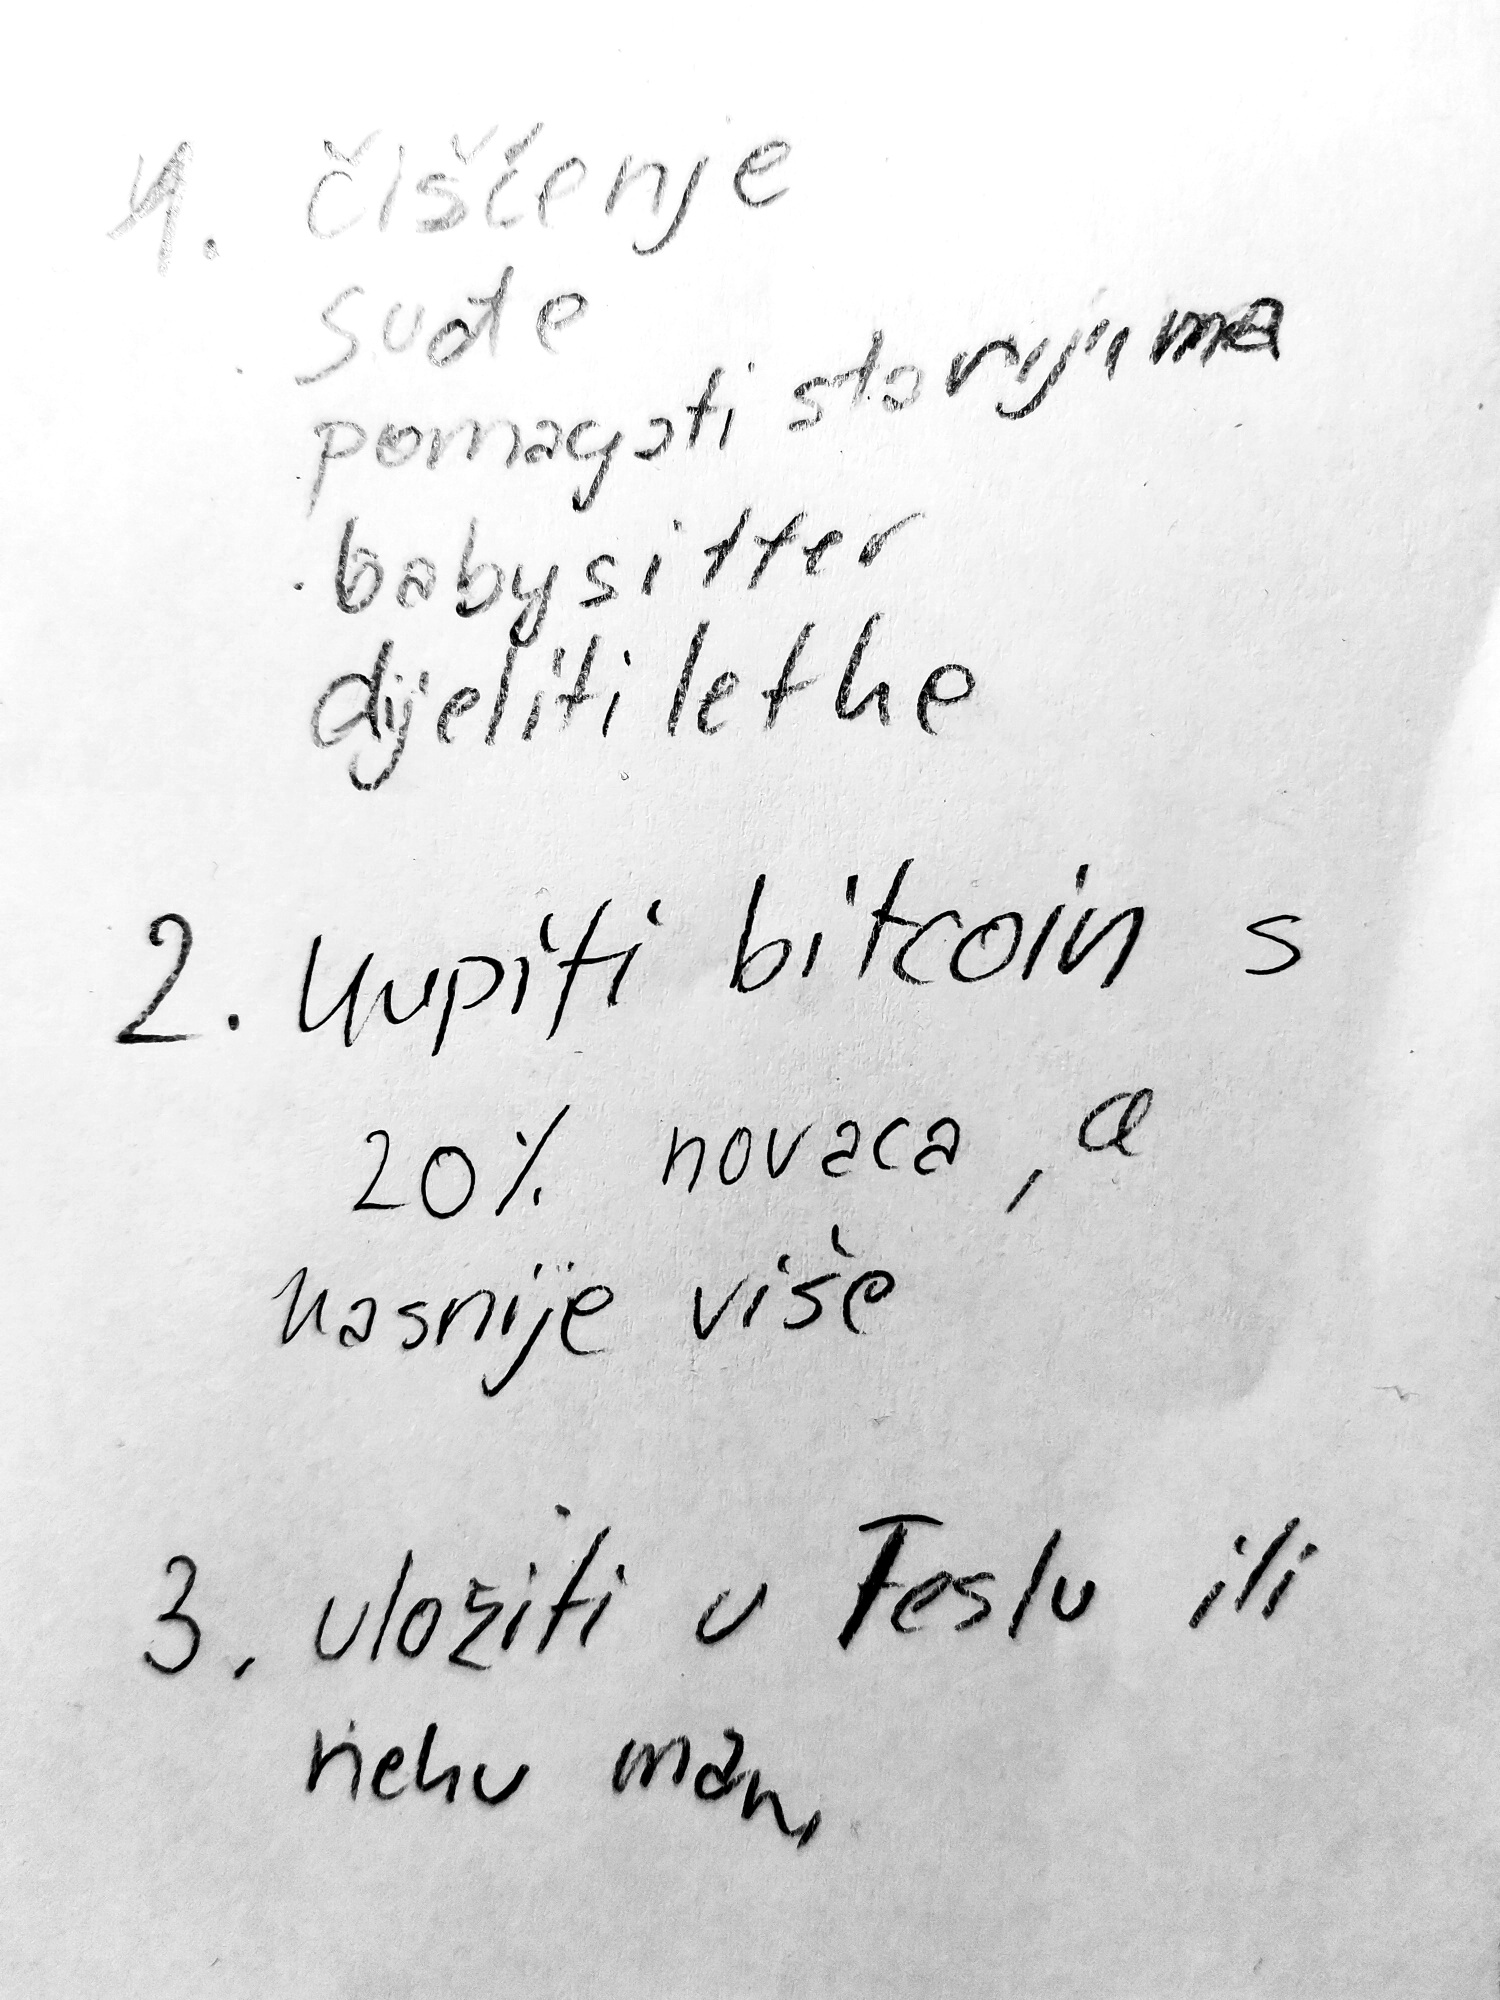 1. čišćenje
suđe
pomagati starijima
babysitter
dijeliti letke
2. kupiti bitcoin s
20% novaca, a
kasnije više
3. uložiti u Teslu ili
neku manj